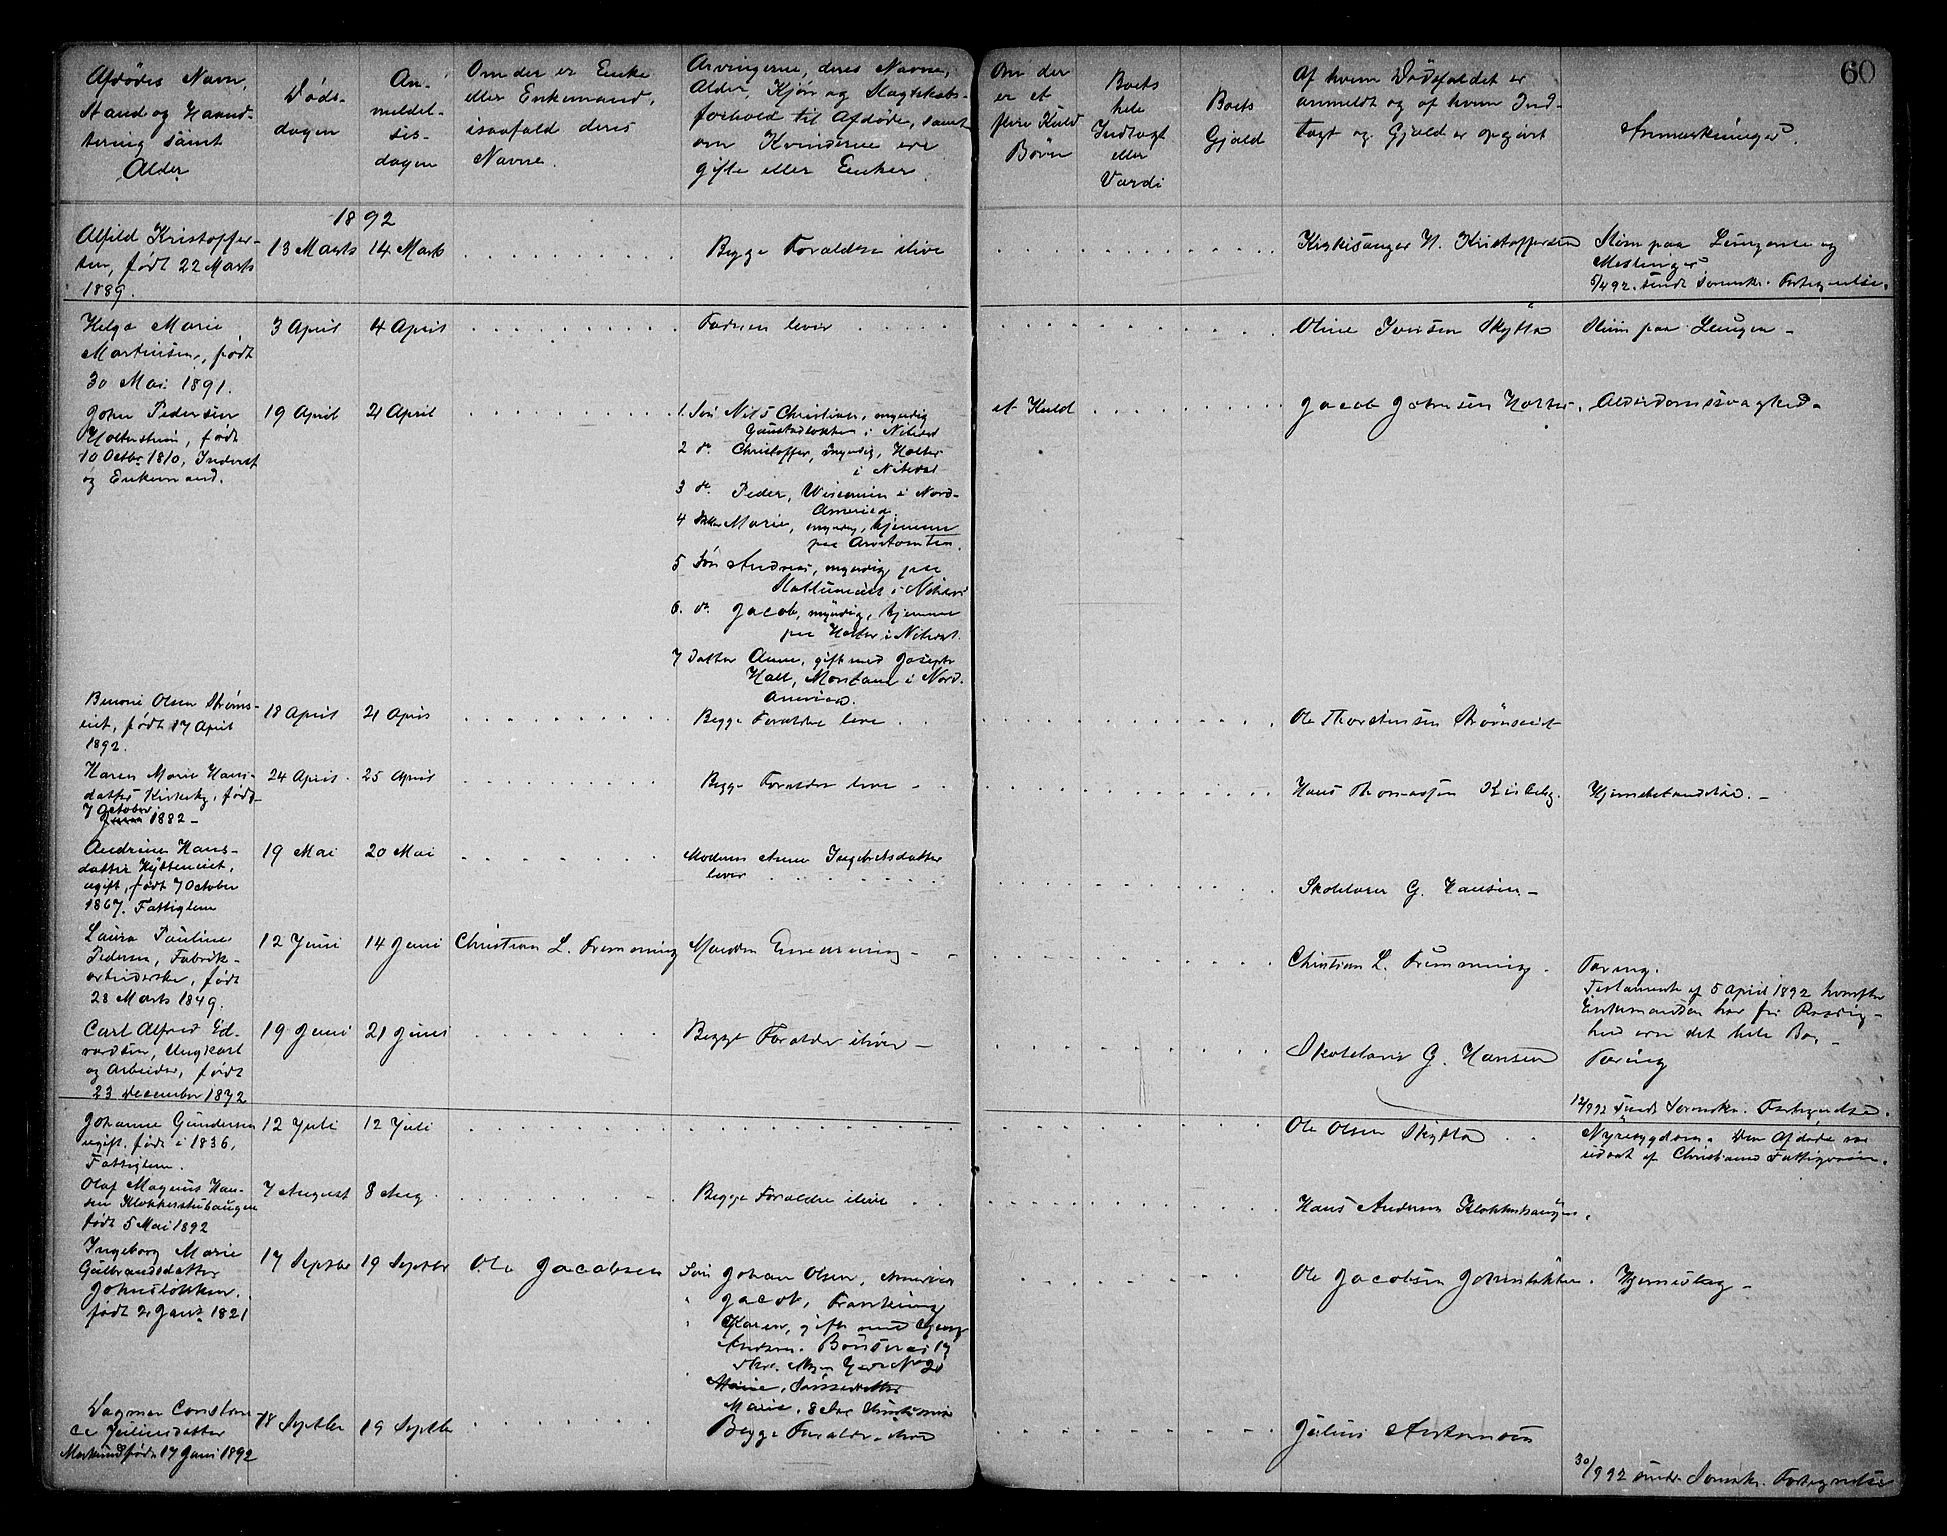 60
Afdødes Navn,
Stand og Haand-
tering samt
Alder
Døds-
dagen
An-
meldel-
ses-
dagen
Om der er Enke
eller Enkemand,
isaafald deres
Navne.
Arvingerne, deres Navne,
Alder, Kjøn og Slagtskabs-
forhold til Afdøde, samt
om Kvinderne ere
gifte eller Enker.
Om der
er et
flere Kuld
Børn
Boets
hele
Indtægt
eller
Værdi
Boets
Gjæld
Af hvem Dødsfaldet er
anmeldt og af hvem Ind-
tægt og Gjæld er opgivet
Anmærkninger.
1892
Alfild Kristoffer-
sen, født 22 Marts
1889.
13 Marts
14 Marts
Begge Forældre ilive
Kirkesanger H. Kristoffersen
Stivn paa Lungerne og
Meslinger
5/4 92. sendt Sorenskr. Fortegnelse.
Helga Marie
Martinsen, født
30 Mai 1891.
3 April
4 April
Faderen lever
Oline Iversen Skytta
paa Lungen -
John Pedersen
Holtersheim, født
10 Octbr. 1810, Inderst
og Enkemand.
19 April
21 April
1. Søn Nils Christian, myndig
i Nitedal
2 do. Christoffer, myndig, Holter
i Nitedal
3 do. Peder, Wisconsin i Nord-
America
4 Datter Marie, myndig, hjemme
paa
5 Søn Andreas, myndig, paa
i Nitedal
6. do. Jacob, myndig, hjemme
paa Holter i Nitedal.
7 Datter Anne, gift med Joseph
Hall, Montana i Nord-
America.
et Kuld
Jacob Johnsen Holter.
Alderdomssvaghed.
Benoni Olsen Strøms-
eiet, født 17 April
1892.
18 April
21 April
Begge Forældre leve
Ole Thorstensen Strømseiet
Karen Marie Hans-
datter Kirkeby, født
7 October
1882 -
24 April
25 April
Begge Forældre leve -
Hans Thomassen Kirkeby.
Hjernebetændelse. -
Andrine Hans-
datter Hytteneiet,
ugift, født 7 October
1867. Fattiglem
19 Mai
20 Mai
Moderen Anne Ingebretsdatter
lever
Skolelærer G. Hansen -
Laura Pauline
Pedersen, Fabrik-
arbeiderske, født
28 Marts 1849.
12 Juni
14 Juni
Christian L. Fremming
Manden Enearving -
Christian L. Fremming.
Tæring.
Testamente af 5 April 1892 hvorefter
Enkemanden har fri Raadig-
hed over det hele Bo, -
Carl Alfred Ed-
vardsen, Ungkarl
og Arbeider, født
23 December 1872
19 Juni
21 Juni
Begge Forældre ilive -
Skolelærer G. Hansen
Tæring
12/7 92 sendt Sorenskr. Fortegnelse.
Johanne Gundersen
ugift. født i 1836.
Fattiglem.
12 Juli
12 Juli
Ole Olsen Skytta
Nyresygdom. Den Afdøde var
udsat af Christiania Fattigvæsen.
Olaf Magnus Han-
sen Klokkerstuhaugen
født 5 Mai 1892
7 August
8 Aug.
Begge Forældre ilive
Hans Andersen Klokkerhaugen.
Ingeborg Marie
Gulbrandsdatter
Johnsløkken.
født 21 Janr. 1821
17 Septbr
19 Septbr
Ole Jacobsen
Søn Johan Olsen, America
" Jacob,
" Karen, gift med Georg
Andersen.
Marie,
Marie,
Ole Jacobsen Johnsløkken.
Hjerneslag -
Dagmar Constan-
ce Juliusdatter
født 17 Juni 1892
18 Septbr
19 Septbr
Begge Forældre ilive
Julius Antonsen
30/9 92 sendt Sorenskr. Fortegnelse